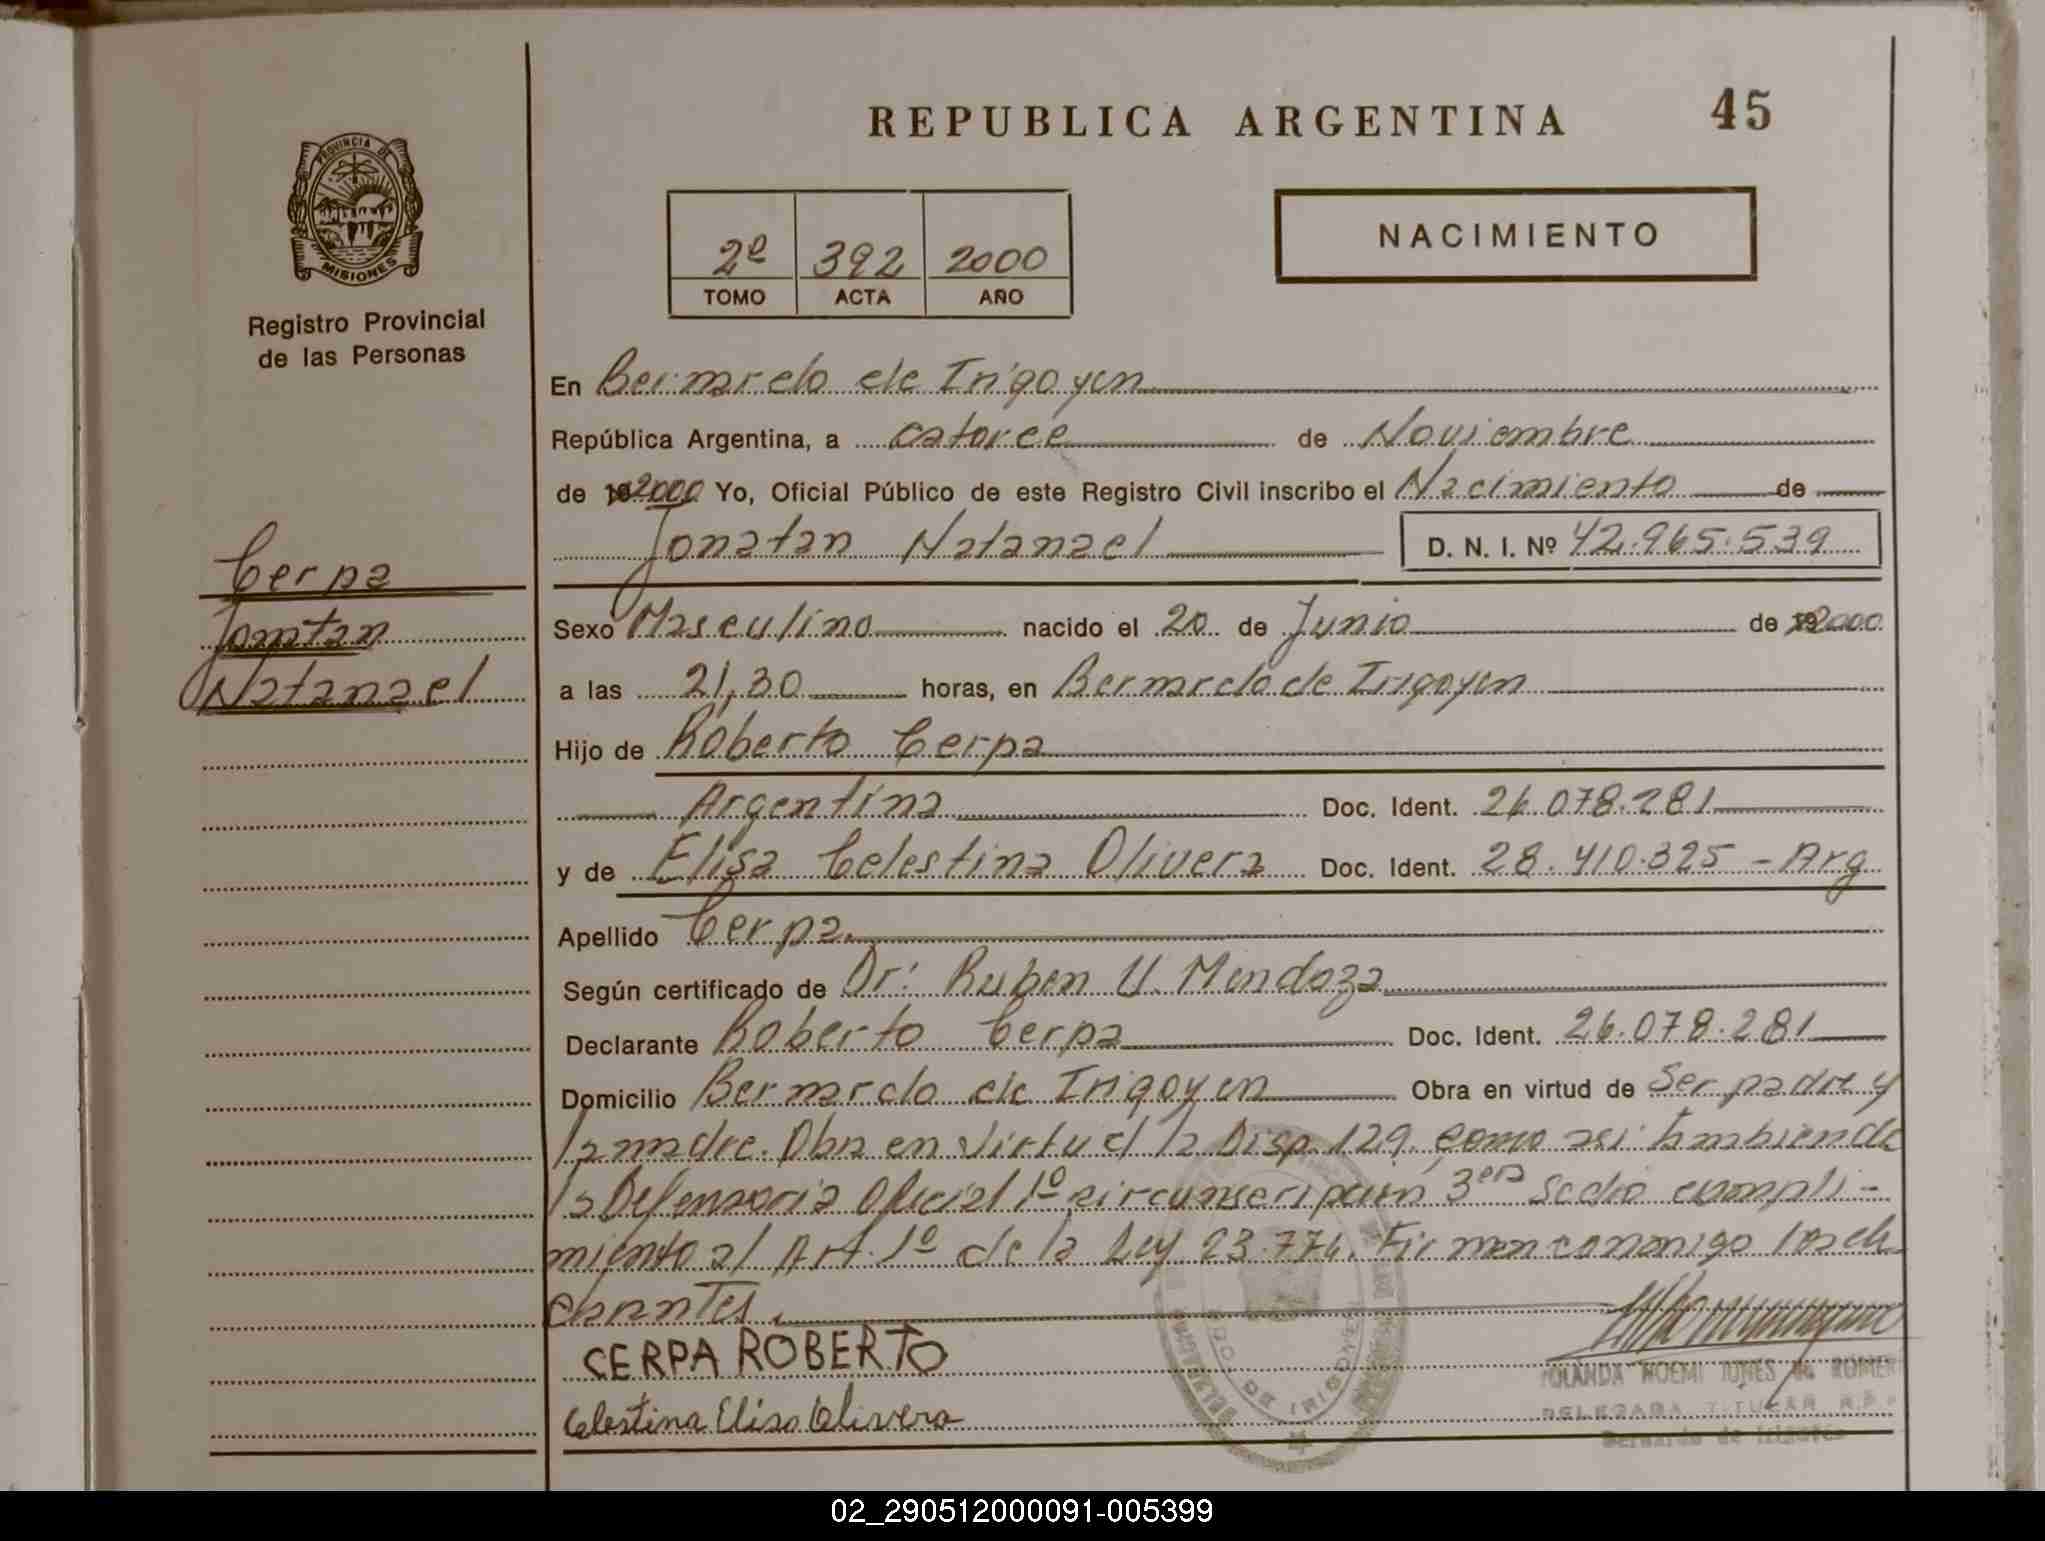 REPUBLICA ARGENTINA 45
PROVINCIA DE MISIONES
Registro Provincial
de las Personas
2º 392 2000
TOMO ACTA AÑO
NACIMIENTO
En Bernardo de Irigoyen
República Argentina, a catorce de Noviembre
de 192000 Yo, Oficial Público de este Registro Civil inscribo el Nacimiento de
Jonatan Natanael D. N. I. Nº 42.965.539
Cerpa
Jonatan
Natanael
Sexo Masculino nacido el 20 de Junio de 192000
a las 21,30 horas, en Bernardo de Irigoyen
Hijo de Roberto Cerpa
Argentina Doc. Ident. 26.078.281
y de Elisa Celestina Olivera Doc. Ident. 28.410.325 - Arg
Apellido Cerpa
Según certificado de Dr: Ruben U. Mendoza
Declarante Roberto Cerpa Doc. Ident. 26.078.281
Domicilio Bernardo de Irigoyen Obra en virtud de Ser padre y
la madre. Obra en virtud la Disp. 129, como asi tambien de
la Defensoria Oficial 1º circunscripcion 3era Se dio cumpli-
miento al Art. 1º de la Ley 23.774. Firman conmigo los de
clarantes.
CERPA ROBERTO
Celestina Elisa Olivera
YOLANDA NOEMI de ROMER
DELEGADA TITULAR R.P.
Bernardo de Irigoyen
BDO DE IRIGOYEN
02_290512000091-005399